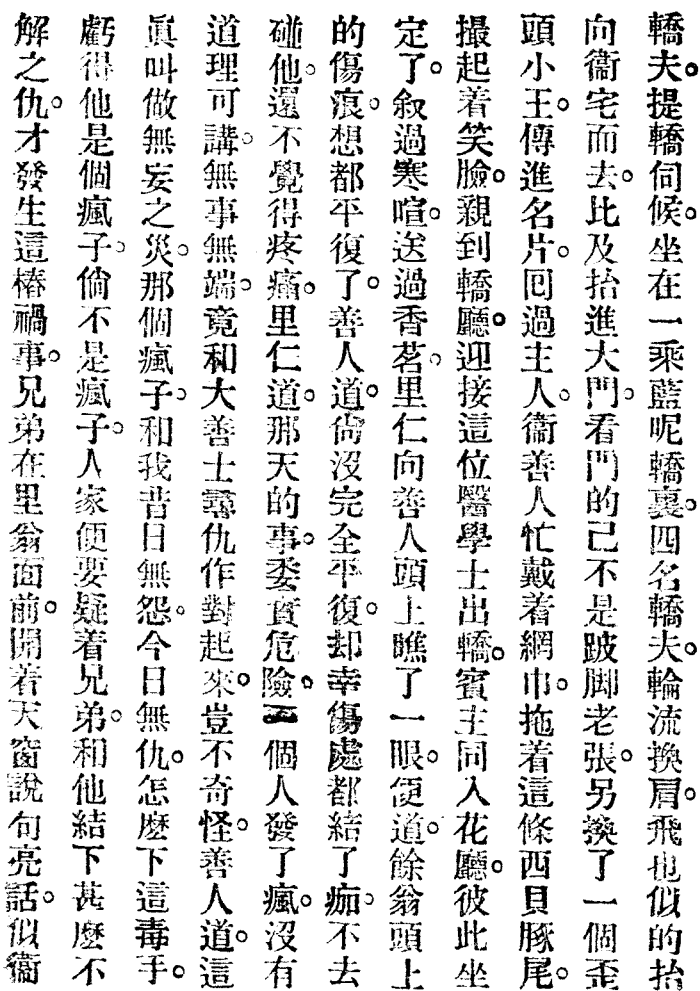 轎夫。提轎伺候。坐在一乘藍呢轎裏。四名轎夫。輪流換肩。飛也似的抬
向衞宅而去。比及抬進大門。看門的已不是跛脚老張。另換了一個歪
頭小王。傳進名片。回過主人。衞善人忙戴着網巾。拖着這條西貝豚尾。
撮起着笑臉。親到轎廳。迎接這位醫學士出轎。賓主同入花廳。彼此坐
定了。叙過寒喧。送過香茗。里仁向善人頭上瞧了一眼。便道。餘翁頭上
的傷痕。想都平復了。善人道。尙沒完全平復。却幸傷處都結了痂。不去
碰他。還不覺得疼痛。里仁道。那天的事。委實危險。一個人發了瘋。沒有
道理可講。無事無端。竟和大善士尋仇作對起來。豈不奇怪。善人道。這
眞叫做無妄之災。那個瘋子。和我昔日無怨。今日無仇。怎麽下這毒手。
虧得他是個瘋子。倘不是瘋子。人家便要疑着兄弟。和他結下甚麽不
解之仇。才發生這樁禍事。兄弟在里翁面前。開着天窗說句亮話。似衞